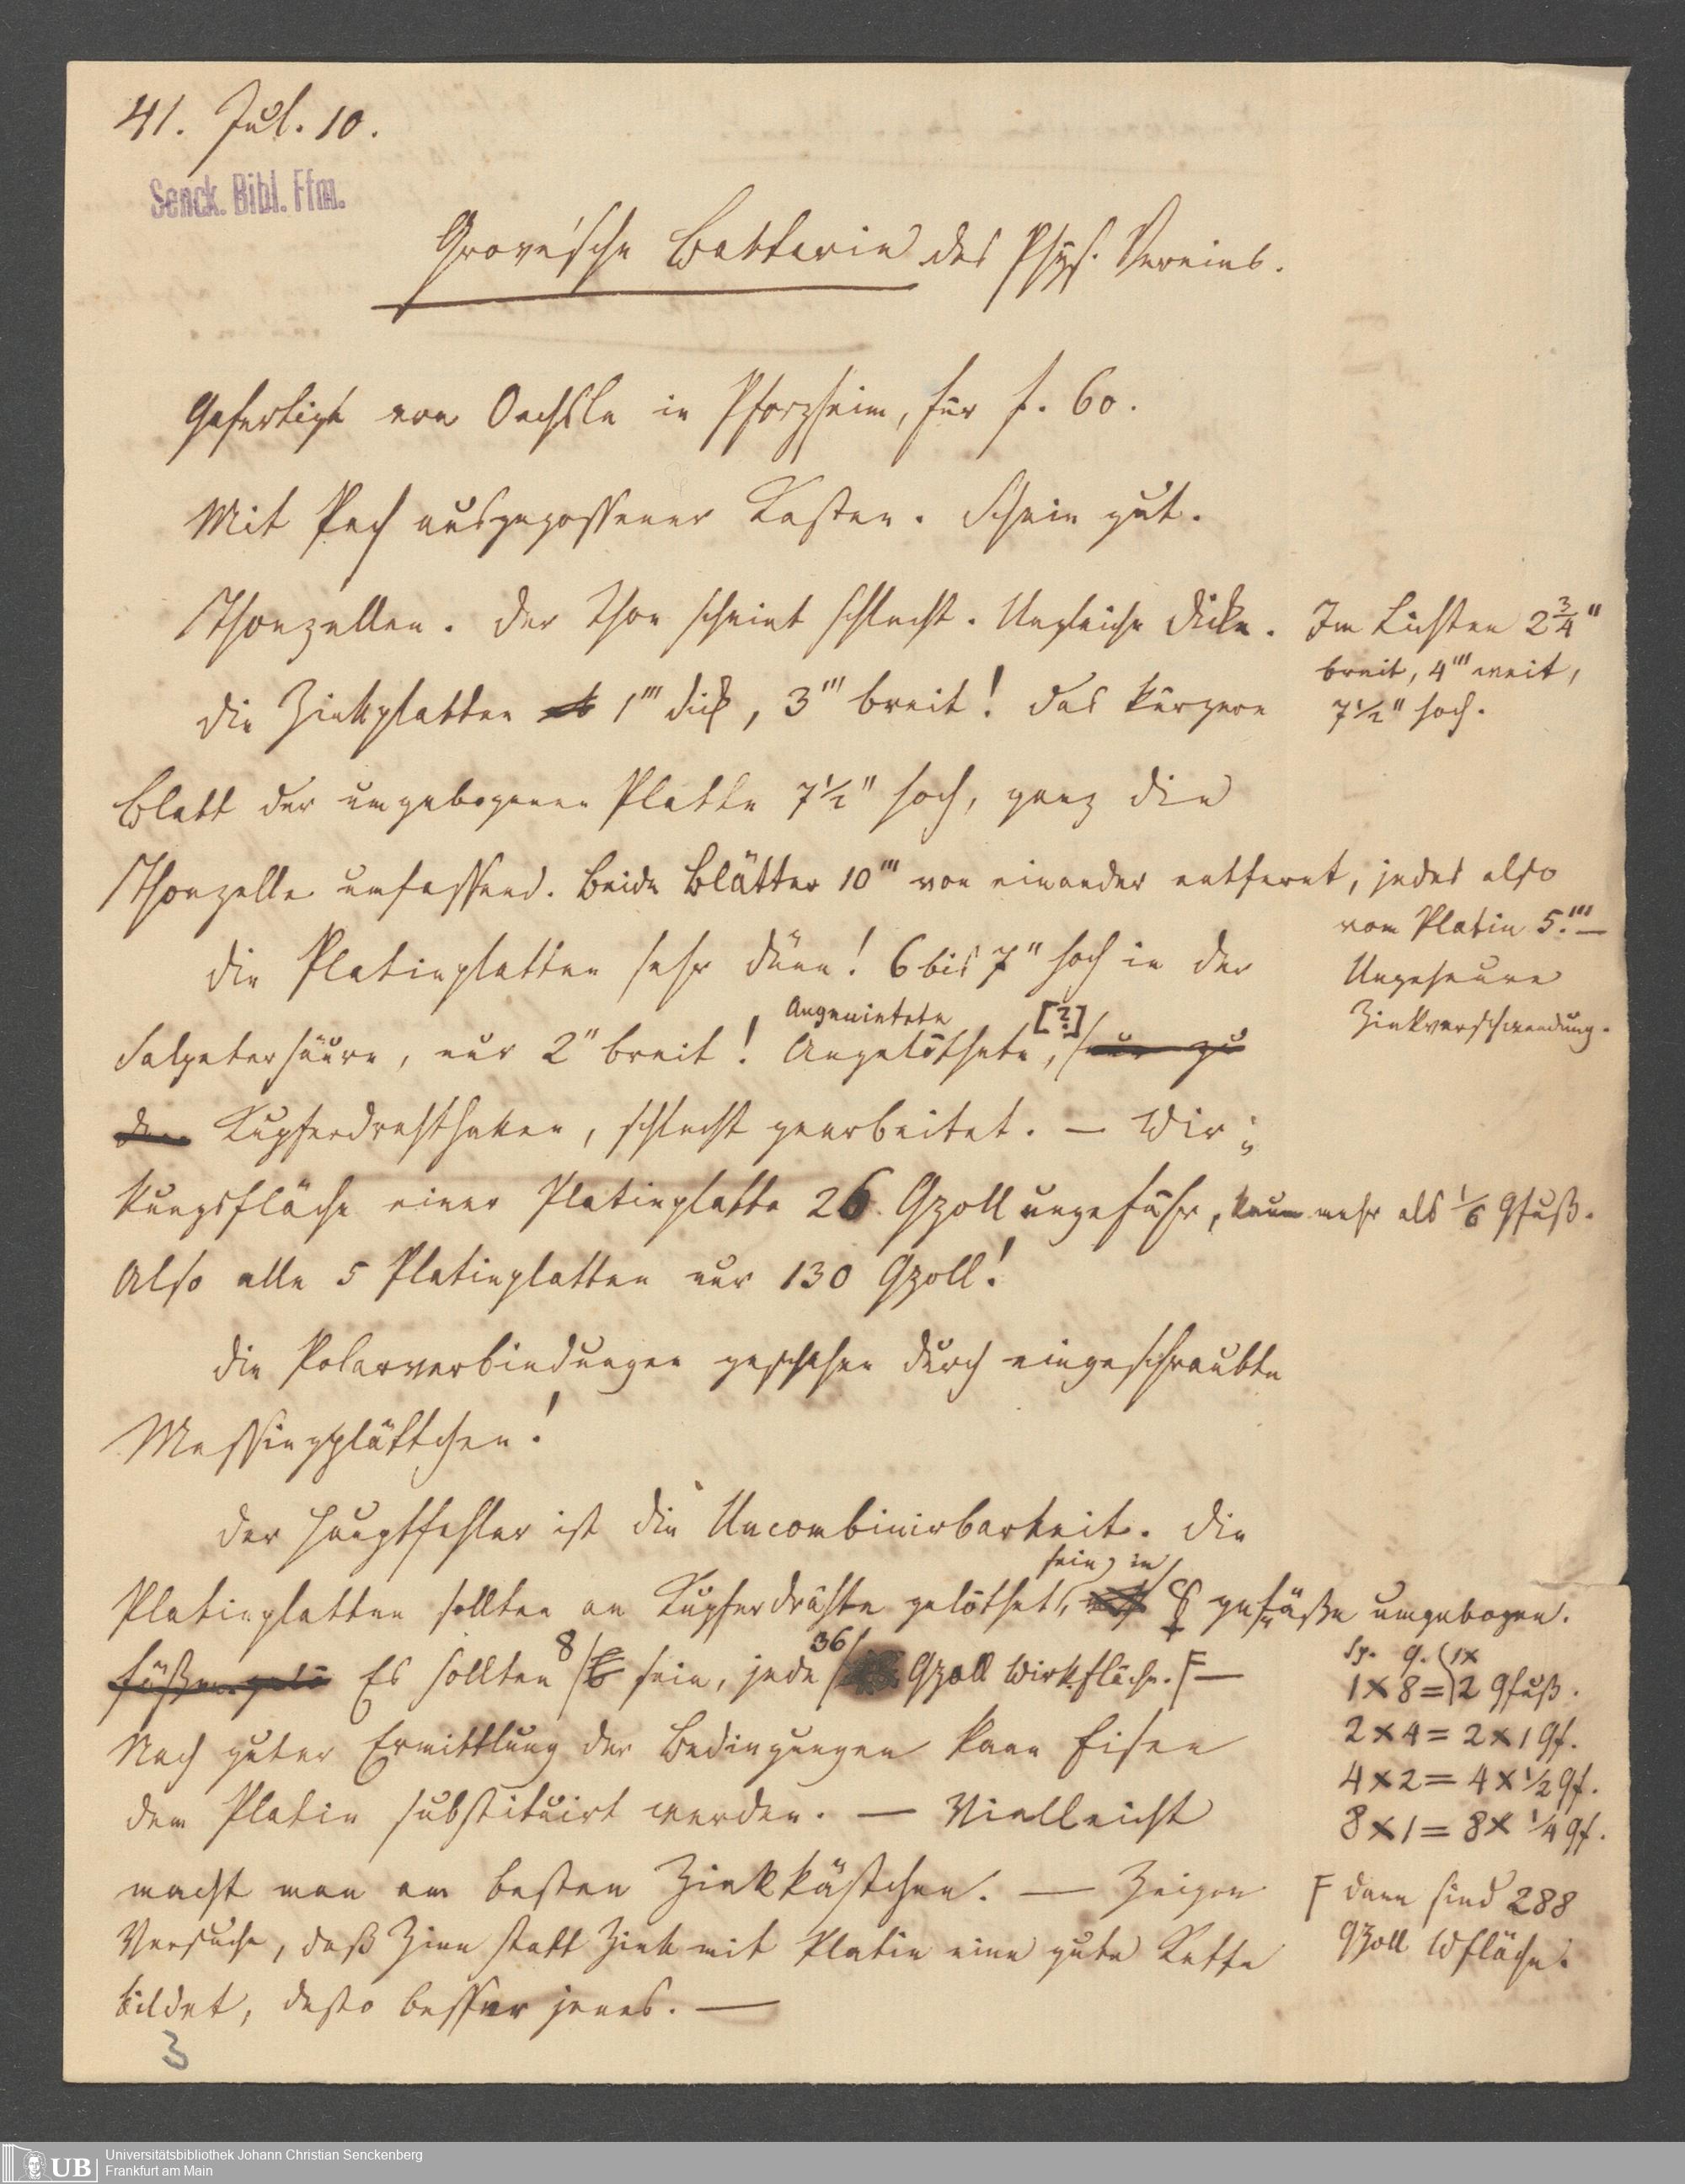 41. Jul. 10.
Senck. Bibl. Ffm.
Grove'sche Batterie des Phys. Vereins.
Gefertigt von Oechsle in Pforzheim, für f. 60.
Mit Pech ausgegossener Kasten. Schein gut.
Thonzellen. Der Thon scheint schlecht. Ungleiche Dicke.
Im Lichten 2¾"
breit, 4''' weit,
7½" hoch.
Die Zinkplatten 1''' dick, 3''' breit! Das kürzere
Blatt der umgebogenen Platte 7½" hoch, ganz die
Thonzelle umfassend. Beide Blätter 10''' von einander entfernt, jedes also
vom Platin 5.''' —
Ungeheure
Zinkverschwendung.
Die Platinplatten sehr dünn! 6 bis 7" hoch in der
Angenietete
Salpetersäure, nur 2" breit! Angelöthete, [?] nur zu
Kupferdrahthaken, schlecht gearbeitet. — Wir-
kungsfläche einer Platinplatte 26 Qzoll ungefähr, kaum mehr als 1/6 Qfuß.
Also alle 5 Platinplatten nur 130 Qzoll!
Die Polarverbindungen geschehen durch eingeschraubte
Messingplättchen!
Der Hauptfehler ist die Uncombinirbarkeit. Die
sein, in
Platinplatten sollten an Kupferdrähte gelöthet, ☿ gefäße umgebogen.
füßen Es sollten 8 6 sein, jede 36 Qzoll Wirkfläche. F —
Sp. Q. 1x
1 x 8 = 2 Qfuß.
2 x 4 = 2 x 1 Qf.
4 x 2 = 4 x ½ Qf.
8 x 1 = 8 x ¼ Qf.
Nach guter Ermittlung der Bedingungen kann Eisen
dem Platin substituirt werden. — Vielleicht
macht man am besten Zinkkästchen. — Zeigen
Versuche, daß Zinn statt Zink mit Platin eine gute Kette
bildet, desto besser jenes. —
F dann sind 288
Qzoll Wfläche.
3
UB
Universitätsbibliothek Johann Christian Senckenberg
Frankfurt am Main